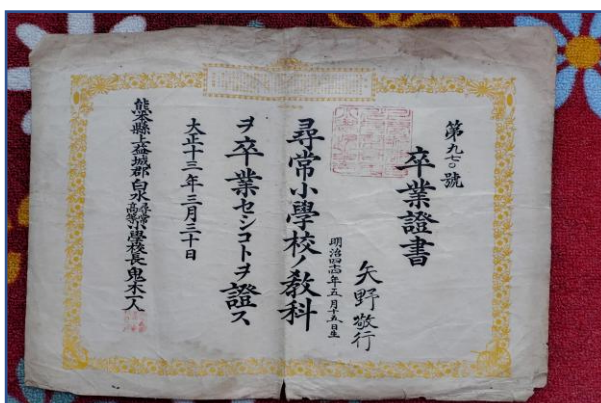 第九七〇號
卒業證書
矢野敬行
明治四十四年五月十五日生
尋常小學校ノ教科
ヲ卒業セシコトヲ證ス
大正十三年三月三十日
熊本縣上益城郡白水尋常高等小學校長鬼木一人